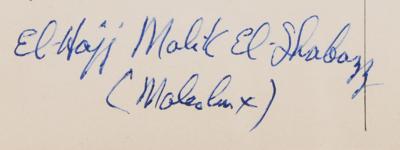 El-Hajj Malik El-Shabazz
(Malcolm X)